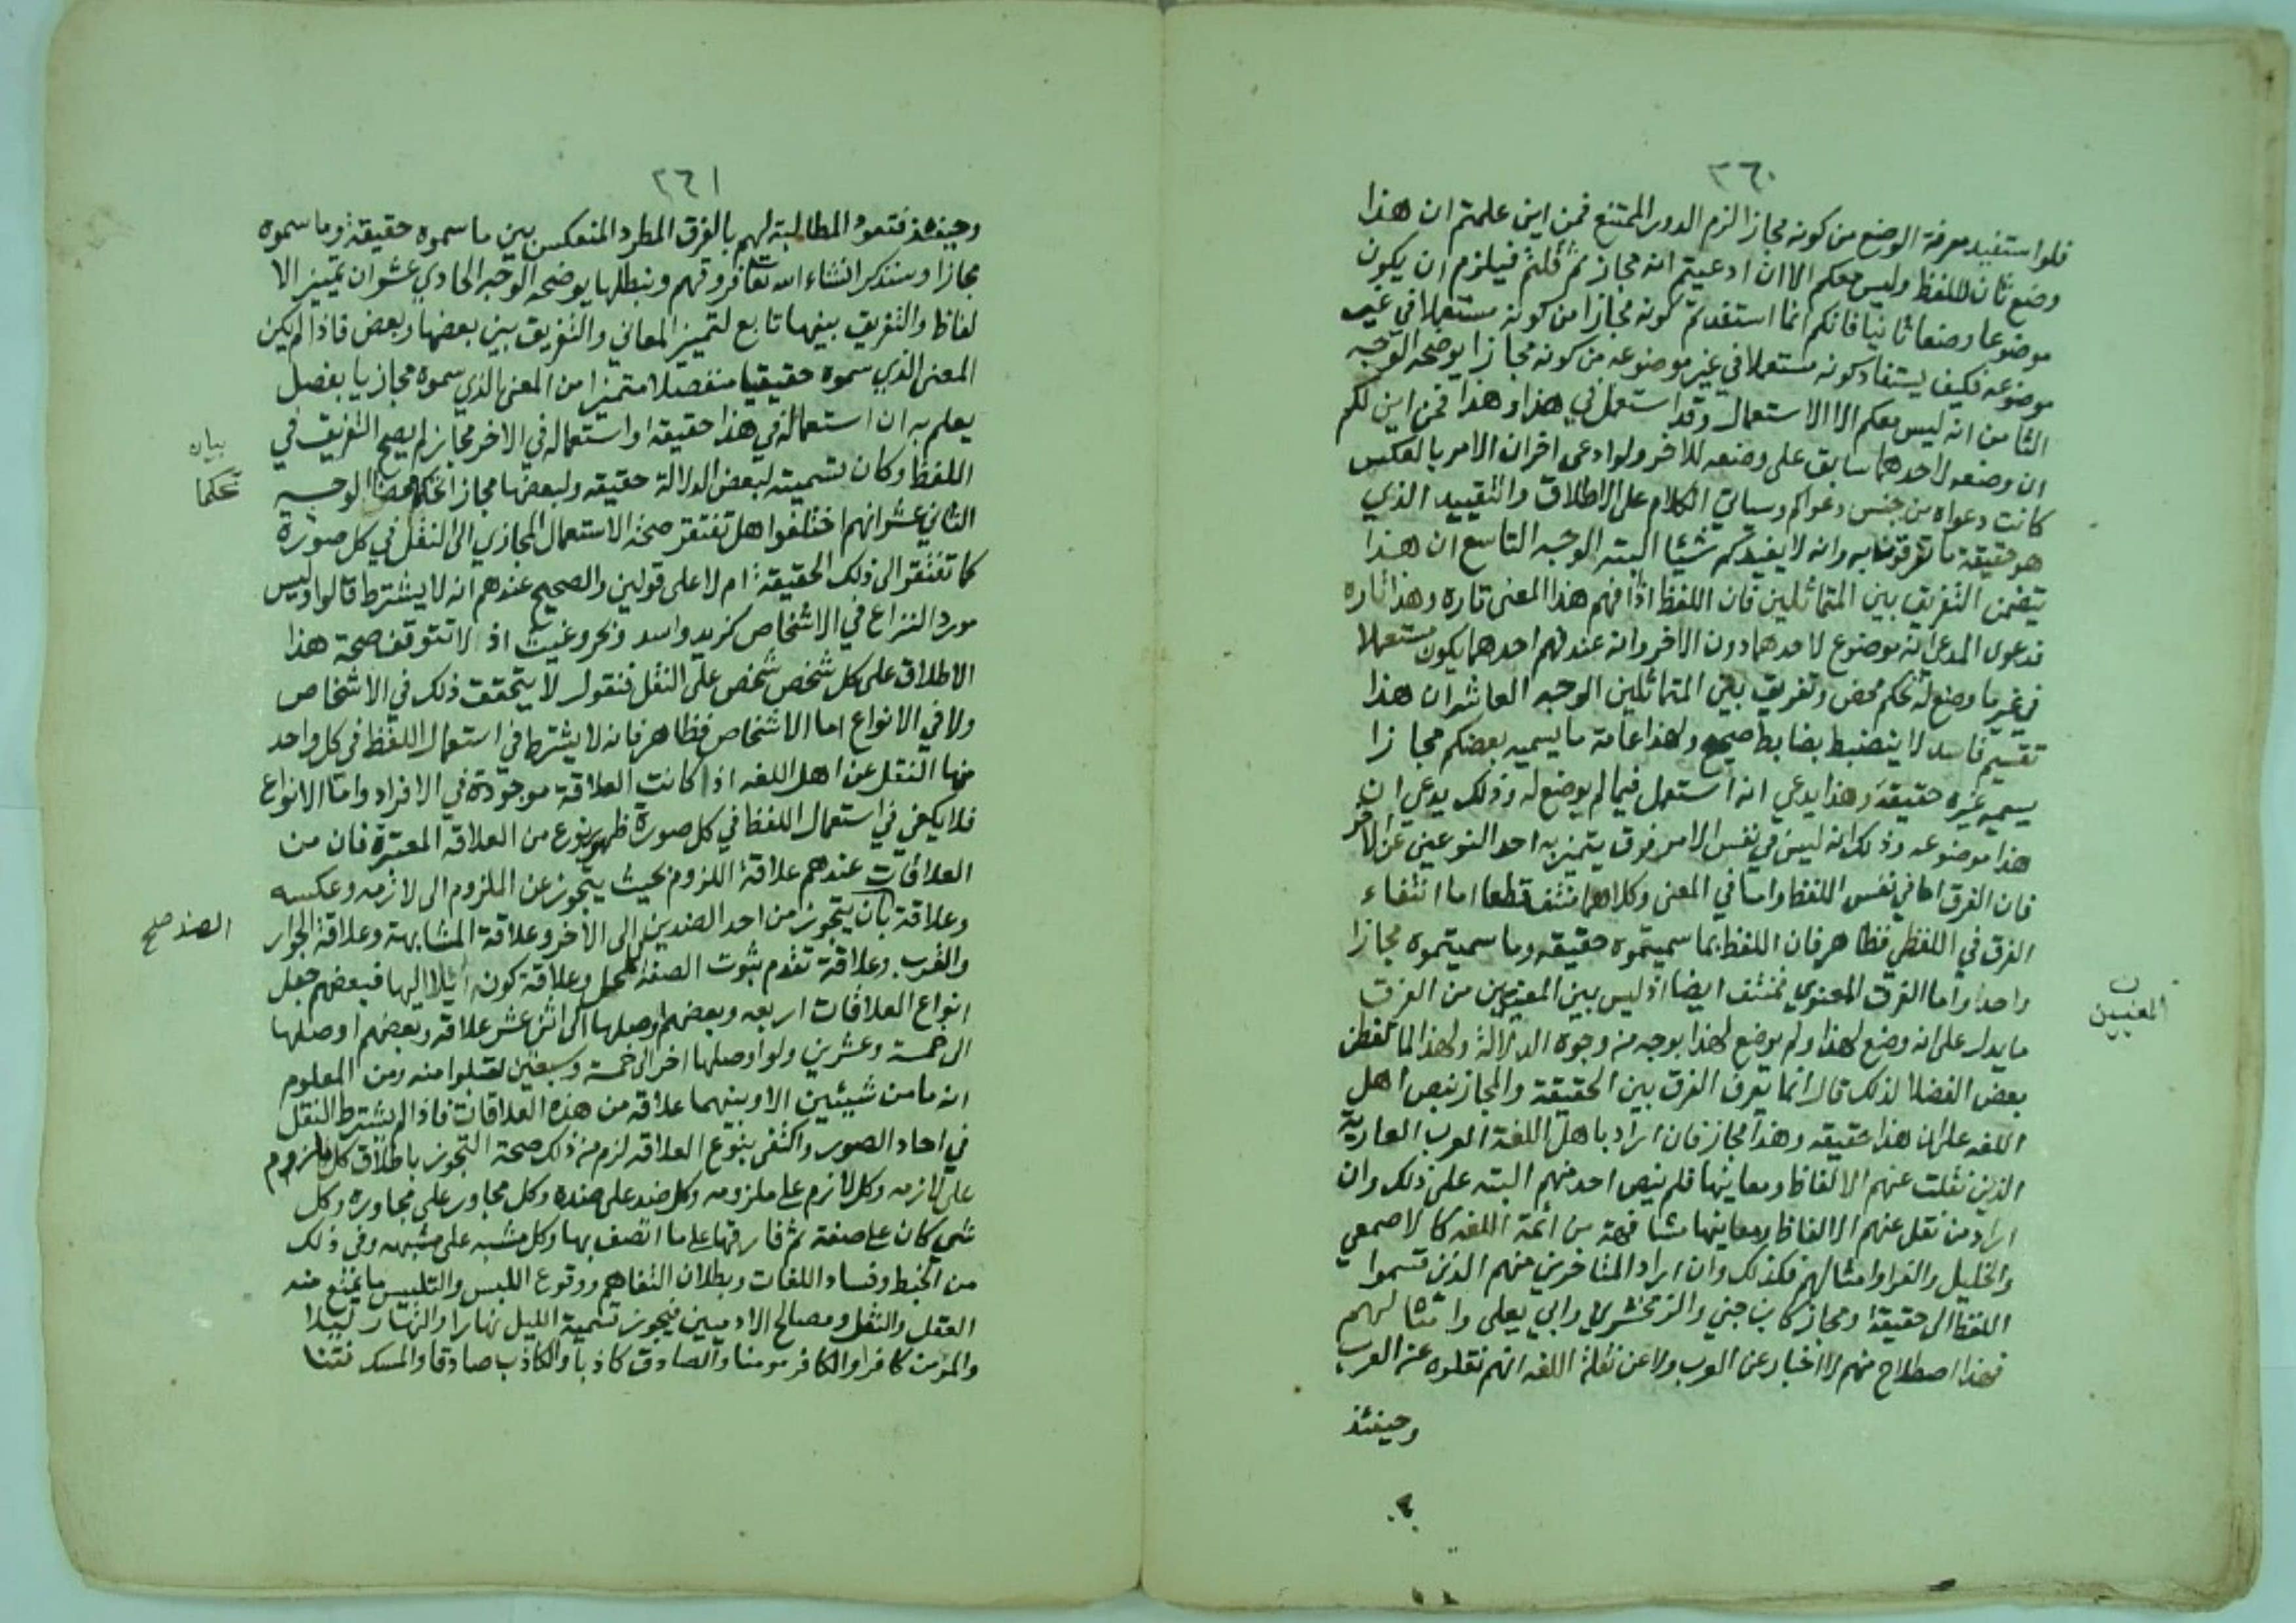 ٣٦٠
فلو استفيد معرفة الوضع من كونه مجازا لزم الدور الممتنع فمن اين علمتم ان هذا
وضع ثان للفظ وليس معكم الا ان ادعيتم انه مجاز ثم قلتم فيلزم ان يكون
موضوعا وضعا ثانيا فانكم انما استفدتم كونه مجازا من كونه مستعملا في غير
موضوعه فكيف يستفاد كونه مستعملا في غير موضوعه من كونه مجازا يوضحه الوجه
الثامن انه ليس معكم الا الاستعمال وقد استعمل في هذا وهذا فمن اين لكم
ان وضعه لاحدهما سابق على وضعه للاخر ولو ادعى اخر ان الامر بالعكس
كانت دعواه من جنس دعواكم وسياتي الكلام على الاطلاق والتقييد الذي
هو حقيقة ما تفرقون به وانه لا يفيدكم شيئا البته الوجه التاسع ان هذا
يتضمن التفريق بين المتماثلين فان اللفظ اذا فهم هذا المعنى تاره وهذا تاره
فدعوى المدعي انه موضوع لاحدهما دون الاخر وانه عند فهم احدهما يكون مستعملا
في غير ما وضع له تحكم محض وتفريق بين المتماثلين الوجه العاشر ان هذا
تقسيم فاسد لا ينضبط بضابط صحيح ولهذا عامة ما يسميه بعضكم مجازا
يسميه غيره حقيقة وهذا يدعي انه استعمل فيما لم يوضع له وذلك يدعي ان
هذا موضوعه وذلك انه ليس في نفس الامر فرق يتميز به احد النوعين عن الاخر
فان الفرق اما في نفس اللفظ واما في المعنى وكلاهما منتف قطعا اما انتفاء
الفرق في اللفظي فظاهر فان اللفظ بما سميتموه حقيقه وما سميتموه مجازا
واحد واما الفرق المعنوي فمنتف ايضا اذ ليس بين المعنيين من الفرق
ن
المعنيين
ما يدل على انه وضع لهذا ولم يوضع لهذا بوجه من وجوه الدلالة ولهذا لما تفطن
بعض الفضلا لذلك قال انما يعرف الفرق بين الحقيقة والمجاز بنص اهل
اللغه على ان هذا حقيقه وهذا مجاز فان اراد باهل اللغة العرب العاربة
الذين نقلت عنهم الالفاظ ومعانيها فلم ينص احد منهم البته على ذلك وان
اراد من نقل عنهم الالفاظ ومعانيها مشافهة من ائمة اللغه كالاصمعي
والخليل والفراوامثالهم فكذلك وان اراد المتاخرين منهم الذين قسموا
اللفظ الى حقيقة ومجاز كابن جني والزمخشري وابي يعلى وامثالهم
فهذا اصطلاح منهم لا اخبار عن العرب ولا عن نقلة اللغه انهم نقلوه عن العرب
وحينئذ
٣٦١
وحينئذ فتعود المطالبة لهم بالفرق المطرد المنعكس بين ما سموه حقيقة وما سموه
مجازا وسنذكر انشاء الله تعا فروقهم ونبطلها يوضحه الوجه الحادي عشر ان تمييز الا
لفاظ والتفريق بينها تابع لتمييز المعاني والتفريق بين بعضها وبعض فاذا لم يكن
المعنى الذي سموه حقيقيا منفصلا متميزا من المعنى الذي سموه مجازيا بفصل
يعلم به ان استعماله في هذا حقيقه او استعماله في الاخر مجاز لم يصح التفريق في
اللفظ وكان تسميته لبعض الدلالة حقيقه ولبعضها مجازا تحكما محضا الوجه
بيان
تحكما
الثاني عشر انهم اختلفوا هل تفتقر صحة الاستعمال المجازي الى النقل في كل صورة
كما تفتقر الى ذلك الحقيقة ام لا على قولين والصحيح عندهم انه لا يشترط قالوا وليس
مورد النزاع في الاشخاص كزيد واسد وبحر وغيث اذ لا تتوقف صحة هذا
الاطلاق على كل شخص شخص على النقل فنقول لا يتحقق ذلك في الاشخاص
ولا في الانواع اما الاشخاص فظاهر فانه لا يشترط في استعمال اللفظ في كل واحد
منها النقل عن اهل اللغه اذا كانت العلاقة موجودة في الافراد واما الانواع
فلا يكفي في استعمال اللفظ في كل صورة ظهور نوع من العلاقه المعتبرة فان من
العلاقات عندهم علاقة اللزوم بحيث يتجوز عن الملزوم الى لازمه وعكسه
وعلاقة بان يتجوز من احد الضدين الى الاخر وعلاقة المشابهة وعلاقة الجوار
الضد صح
والقرب وعلاقة تقدم ثبوت الصفة للمحل وعلاقة كونه ايلا اليها فبعضهم جعل
انواع العلاقات اربعه وبعضهم اوصلها الى اثنى عشر علاقه وبعضهم اوصلها
الى خمسة وعشرين ولو اوصلها اخر الى خمسة وسبعين لقبلوا منه ومن المعلوم
انه ما من شيئين الا وبينهما علاقه من هذه العلاقات فاذا لم يشترط النقل
في احاد الصور واكتفى بنوع العلاقه لزم من ذلك صحة التجوز باطلاق كل ملزوم
على لازمه وكل لازم على ملزومه وكل ضد على ضده وكل مجاور على مجاوره وكل
شي كان على صفة ثم فارقها على ما اتصف بها وكل مشبه على مشبهه وفي ذلك
من الخبط وفساد اللغات وبطلان التفاهم ووقوع اللبس والتلبيس ما يمنع منه
العقل والنقل ومصالح الادميين فيجوز تسمية الليل نهارا والنهار ليلا
والمومن كافرا والكافر مومنا والصادق كاذبا والكاذب صادقا والمسك نتنا